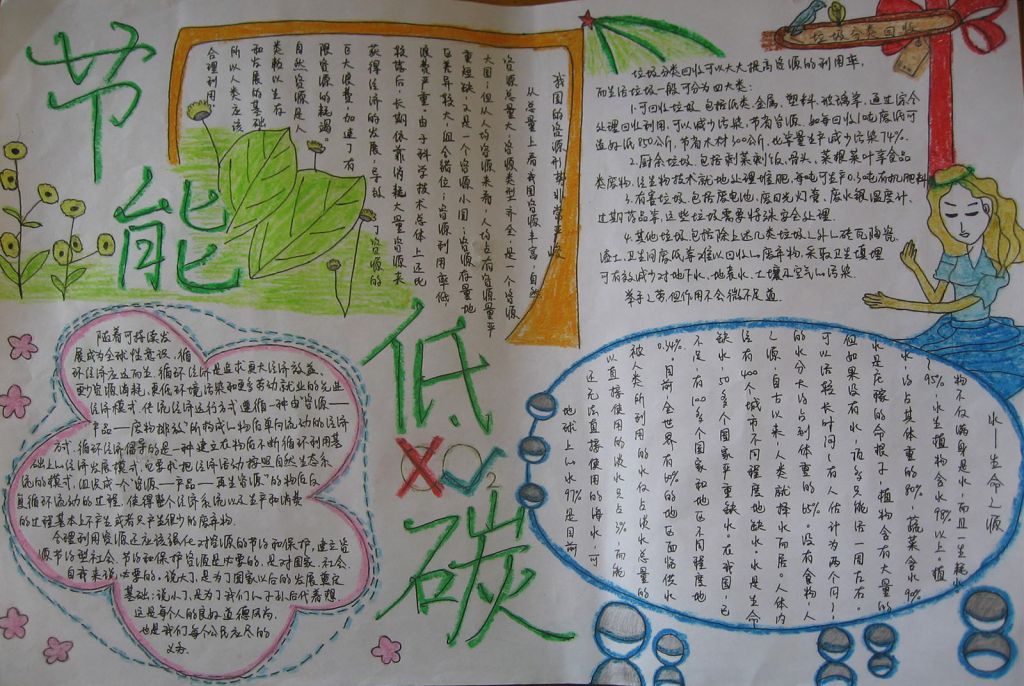 节能
低碳
我国的资源形势非常严峻
从总量上看我国资源丰富,自然
资源总量大、资源类型齐全,是一个资源
大国;但从人均资源来看,人均占有资源量严
重短缺,又是一个资源小国;资源存量地
区差异较大,组合错位;资源利用率低
浪费严重,由于科学技术总体上还比
较落后,长期依靠消耗大量资源来
获得经济的发展,导致了资源的
巨大浪费,加速了有
限资源的耗竭。
自然资源是人
类赖以生存
和发展的基础
所以人类应该
合理利用
垃圾分类回收
垃圾分类回收可以大大提高资源的利用率,
而生活垃圾一般可分为四大类:
1.可回收垃圾,包括纸类、金属、塑料、玻璃等,通过综合
处理回收利用,可以减少污染,节省资源,如每回收1吨废纸可
造好纸850公斤,节省木材300公斤,比等量生产减少污染74%。
2.厨余垃圾,包括剩菜剩饭、骨头、菜根菜叶等食品
类废物,经生物技术就地处理堆肥,每吨可生产0.3吨有机肥料
3.有害垃圾,包括废电池、废日光灯管、废水银温度计、
过期药品等,这些垃圾需要特殊安全处理。
4.其他垃圾,包括除上述几类垃圾之外的砖瓦陶瓷、
渣土、卫生间废纸等难以回收的废弃物,采取卫生填埋
可有效减少对地下水、地表水、土壤及空气的污染
举手之劳但作用不会微不足道
随着可持续发
展成为全球性意识,循
环经济应运而生,循环经济是追求更大经济效益、
更少资源消耗、更低环境污染和更多劳动就业的先进
经济模式,传统经济运行方式遵循一种由“资源—
产品—废物排放”所构成的物质单向流动的经济
方式。循环经济倡导的是一种建立在物质不断循环利用基
础上的经济发展模式,它要求把经济活动按照自然生态系
统的模式,组织成一个“资源—产品—再生资源”的物质反
复循环流动的过程,使得整个经济系统以及生产和消费
的过程基本上不产生或者只产生很少的废弃物。
合理利用资源还应该强化对资源的节约和保护,建立资
源节约型社会,节约和保护资源是必要的,是对国家、社会、
自我来说必要的,说大了,是为了国家以后的发展奠定
基础;说小了,是为了我们的子孙后代着想
这是每个人的良好道德风尚,
也是我们每个公民应尽的
义务
水—生命之源
物不仅满身是水,而且一生耗水
(95%,水生植物含水98%以上。植
水,约占其体重的80%,蔬菜含水90%
水是庄稼的命根子,植物含有大量的
但如果没有水,顶多只能活一周左右。
可以活较长时间(有人估计为两个月);
的水分大约占到体重的65%。没有食物,人
之源,自古以来,人类就择水而居。人体内
经有400个城市不同程度地缺水。水是生命
缺水,50多个国家严重缺水。在我国,已
不足,有100多个国家和地区不同程度地
0.34%。目前,全世界有60%的地区面临供水
被人类所利用的水仅占淡水总量的
以直接使用的淡水只占3%,而能
还无法直接使用的海水,可
地球上的水97%是目前